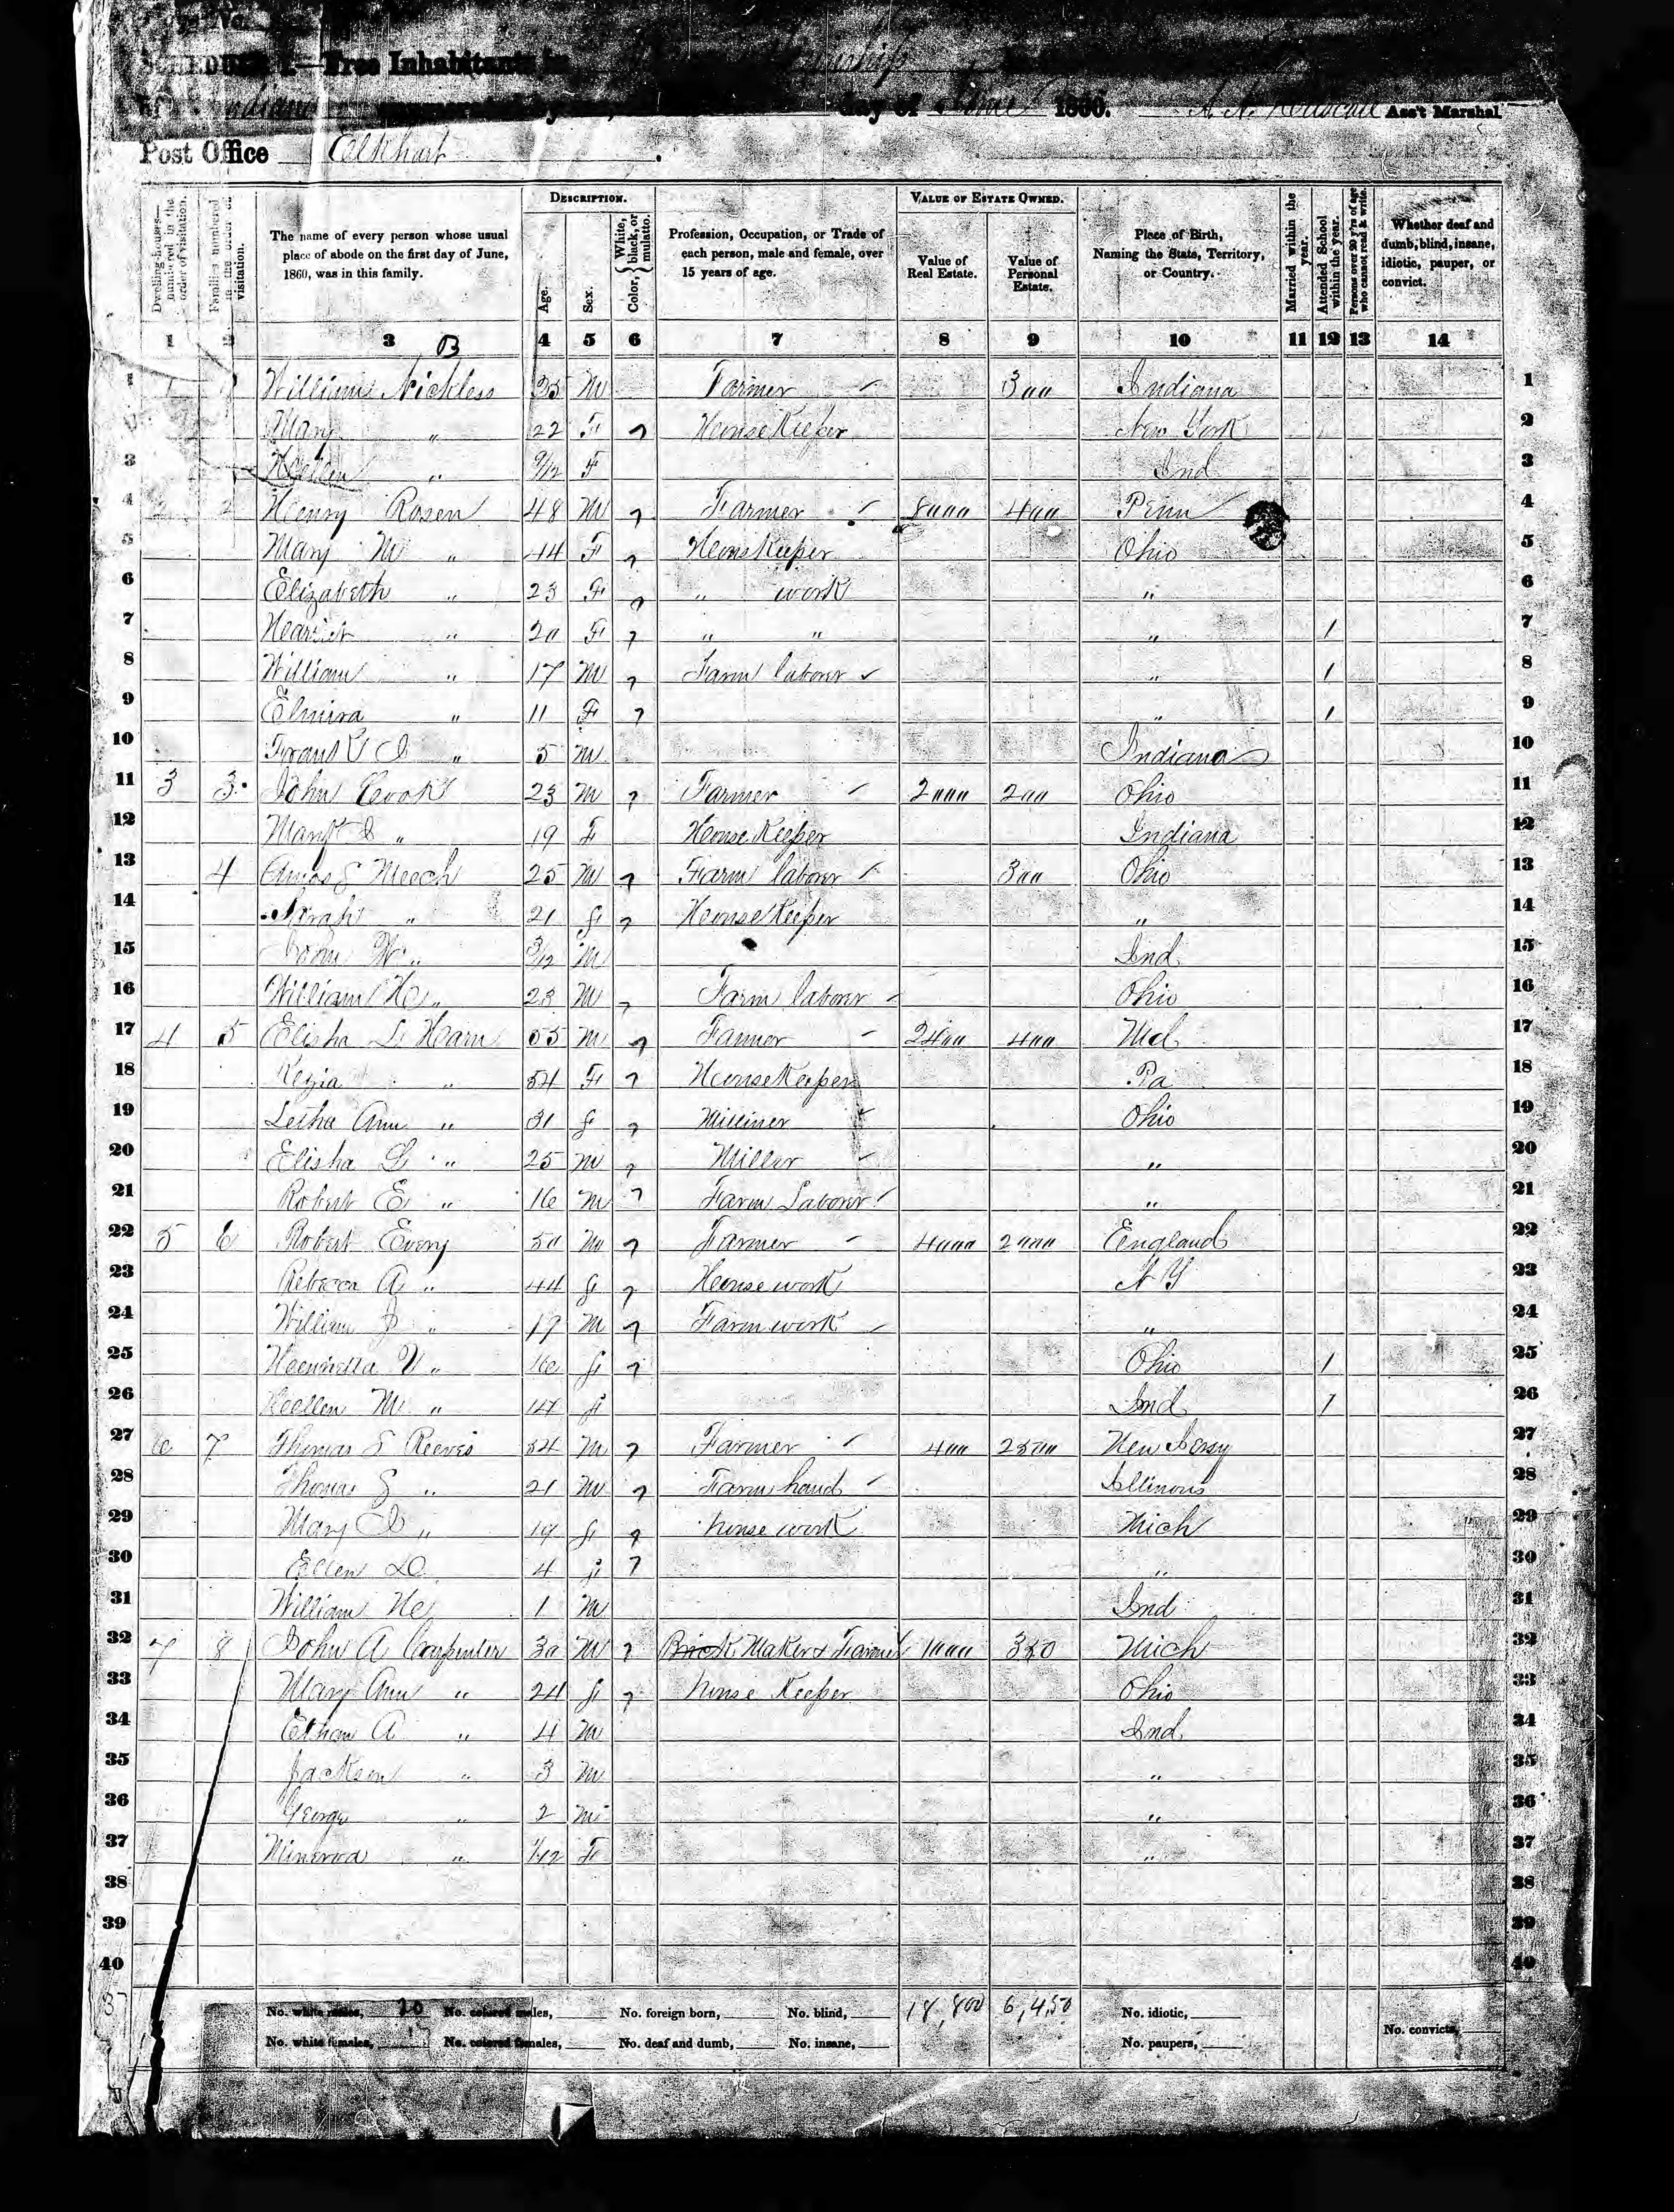 SCHEDULE 1.—Free Inhabitants in Township
Indiana day of June 1860. Ass't Marshal
Post Office Elkhart
DESCRIPTION. VALUE OF ESTATE OWNED.
Dwelling-houses—numbered in the order of visitation. Families numbered in the order of visitation. The name of every person whose usual place of abode on the first day of June, 1860, was in this family. Age. Sex. Color, { White, black, or mulatto. Profession, Occupation, or Trade of each person, male and female, over 15 years of age. Value of Real Estate. Value of Personal Estate. Place of Birth, Naming the State, Territory, or Country. Married within the year. Attended School within the year. Persons over 20 y'rs of age who cannot read & write. Whether deaf and dumb, blind, insane, idiotic, pauper, or convict.
1 2 3 B 4 5 6 7 8 9 10 11 12 13 14
1 1 William Nickless 25 M Farmer 300 Indiana 1
2 Mary " 22 F House Keeper New York 2
3 Hellen " 9/12 F Ind 3
4 2 2 Henry Rosen 48 M Farmer 8000 400 Penn 4
5 Mary M " 44 F House Keeper Ohio 5
6 Elizabeth " 23 F " work " 6
7 Harriet " 20 F " " " 1 7
8 William " 17 M Farm laborer " 1 8
9 Elmira " 11 F " 1 9
10 Frank D " 5 M Indiana 10
11 3 3 John Cook 23 M Farmer 2000 200 Ohio 11
12 Mary " 19 F House Keeper Indiana 12
13 4 Amos S Meech 25 M Farm laborer 300 Ohio 13
14 Sarah " 21 F House Keeper " 14
15 John W " 3/12 M Ind 15
16 William H " 23 M Farm laborer Ohio 16
17 4 5 Elisha L Hearn 55 M Farmer 2400 400 Md 17
18 Kezia " 54 F House Keeper Pa 18
19 Letha Ann " 31 F Milliner Ohio 19
20 Elisha L " 25 M Miller " 20
21 Robert E " 16 M Farm Laborer " 21
22 5 6 Robert Every 50 M Farmer 4000 2000 England 22
23 Rebecca A " 44 F House work N Y 23
24 William J " 19 M Farm work " 24
25 Henrietta V " 16 F Ohio 1 25
26 Hellen M " 14 F Ind 1 26
27 6 7 Thomas S Reeves 54 M Farmer 400 2500 New Jersy 27
28 Thomas S " 21 M Farm hand Illinois 28
29 Mary D " 19 F house work Mich 29
30 Ellen D 4 F " 30
31 William H 1 M Ind 31
32 7 8 John A Carpenter 30 M Brick Maker & Farmer 1000 350 Mich 32
33 Mary Ann " 24 F house Keeper Ohio 33
34 Ethan A " 4 M Ind 34
35 Jackson " 3 M " 35
36 George " 2 M " 36
37 Minerva " 1/12 F " 37
38 38
39 39
40 40
37 No. white males, 20 No. colored males, No. foreign born, No. blind, 18,800 6,450 No. idiotic,
No. white females, No. colored females, No. deaf and dumb, No. insane, No. paupers, No. convicts,